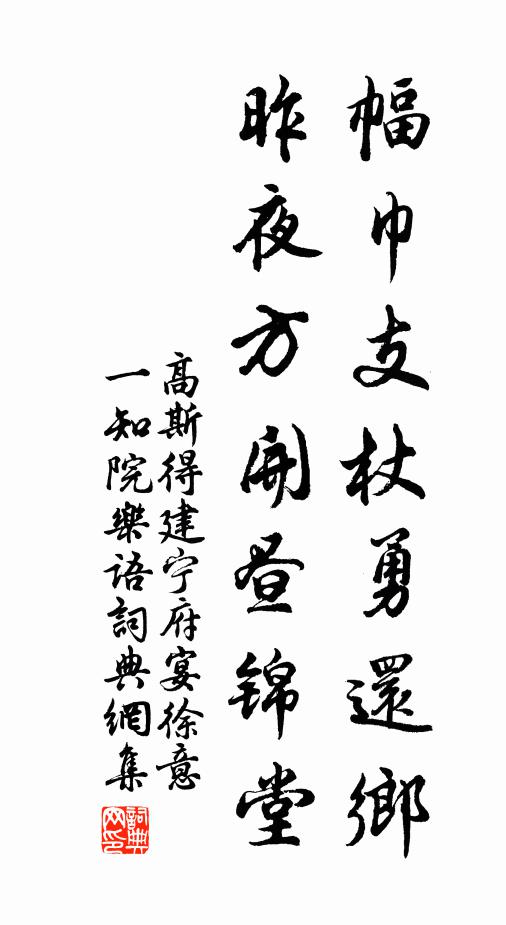 幅巾支杖勇還鄉
昨夜方開晝锦堂
高斯得建宁府宴徐意
一知院樂语詞典網集
詞典网印